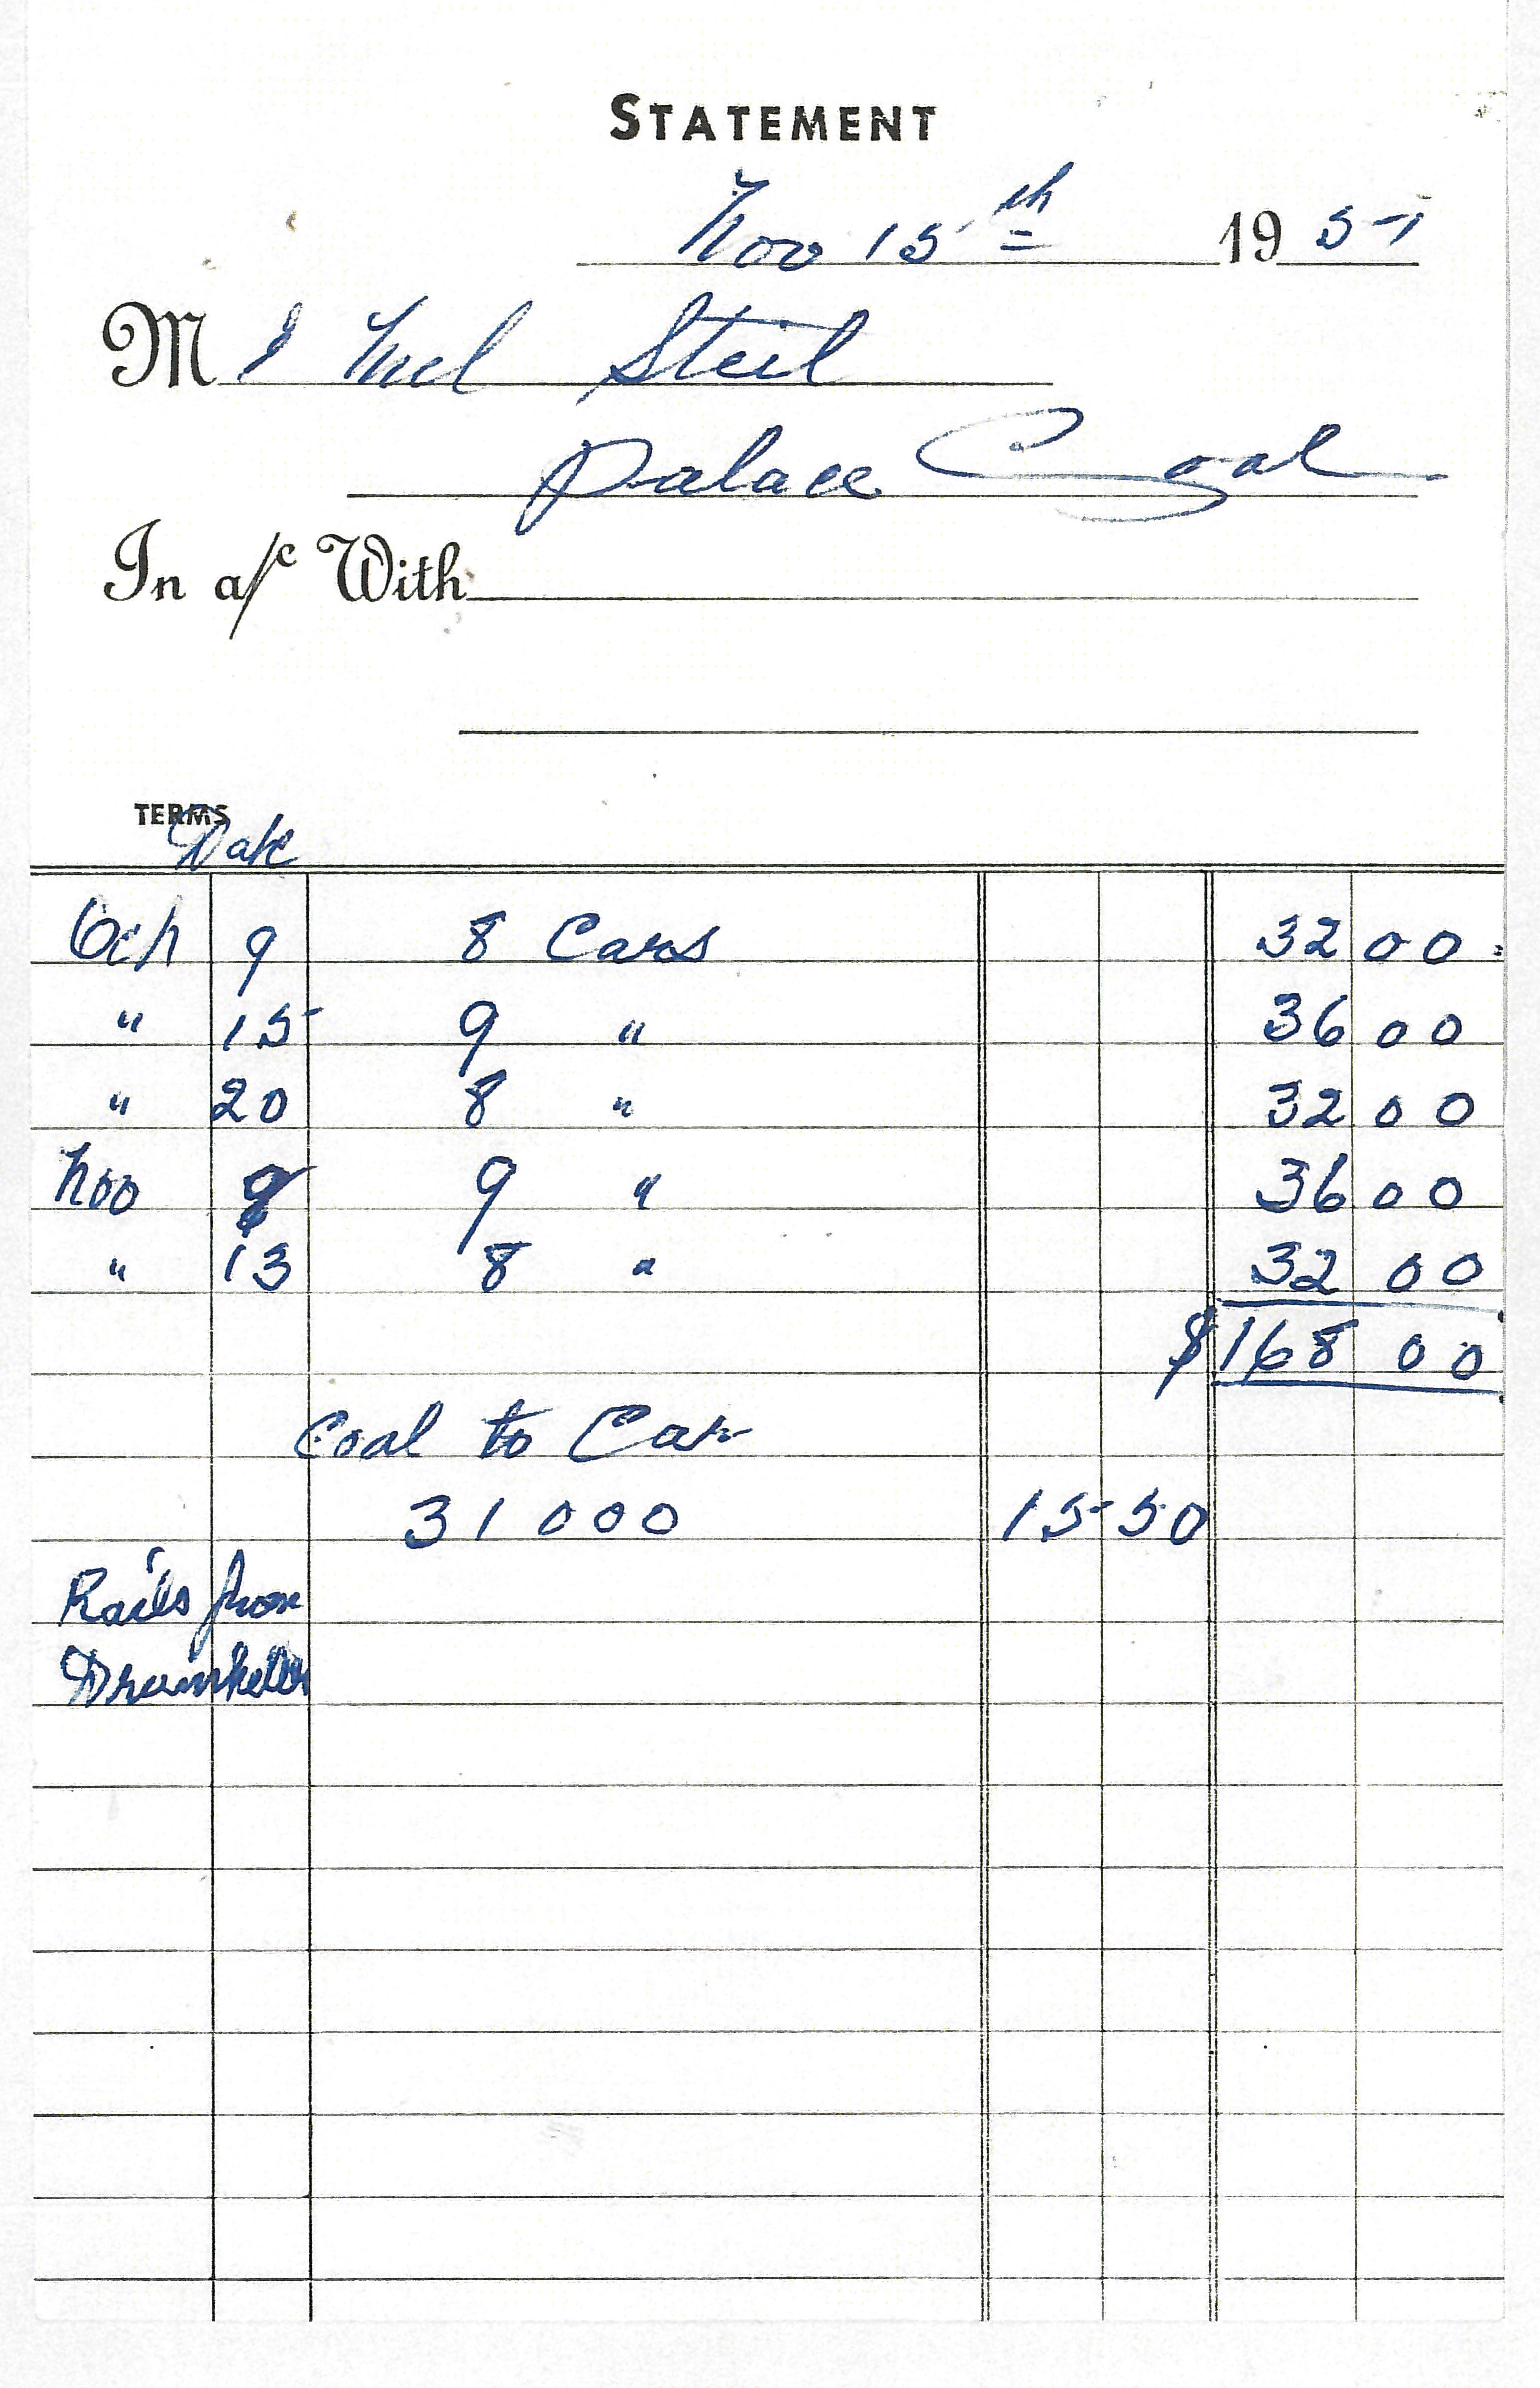 STATEMENT
Nov 15th 1951
M Mel Steil
Palace Coal
In a/c With
TERMS
Date
Oct 9 8 Cars 32 00
" 15 9 " 36 00
" 20 8 " 32 00
Nov 9 9 " 36 00
" 13 8 " 32 00
$168 00
Coal to Car
31000 15 50
Rails from
Drumheller